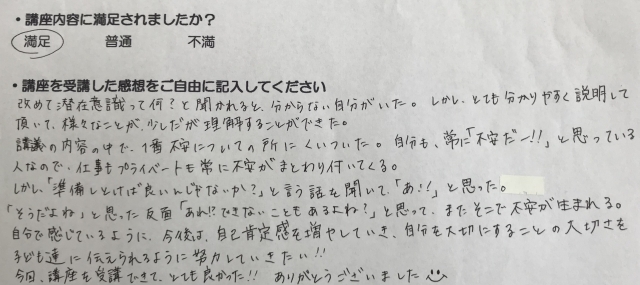 ・講座内容に満足されましたか？
満足　普通　不満
・講座を受講した感想をご自由に記入してください
改めて潜在意識って何？と聞かれると、分からない自分がいた。しかし、とても分かりやすく説明して
頂いて、様々なことが、少しだが理解することができた。
講議の内容の中で、1番不安についての所にくいついた。自分も、常に「不安だー!!」と思っている
人なので、仕事もプライベートも常に不安がまとわり付いてくる。
しかし「準備しとけば良いんじゃないか？」と言う話を聞いて、「あ!!」と思った。
「そうだよね」と思った反面「あれ!?できないこともあるよね？」と思って、またそこで不安が生まれる。
自分で感じているように、今後は、自己肯定感を増やしていき、自分を大切にすることの大切さを
子ども達に伝えられるように努力していきたい!!
今回、講座を受講できて、とても良かった!!　ありがとうございました